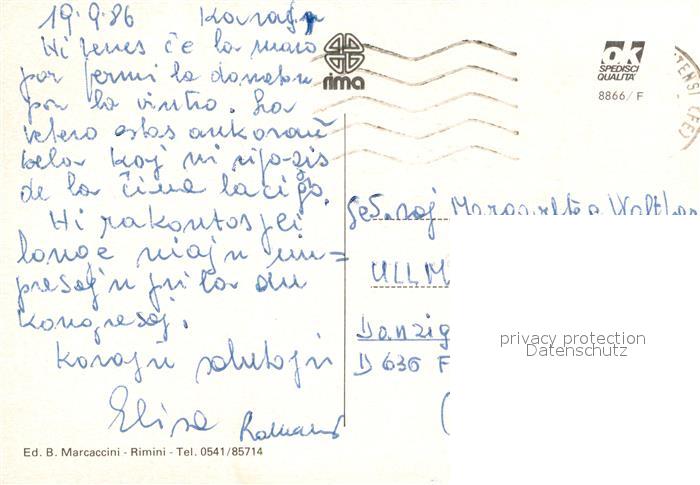 19.9.86 Karaj
Ni venas ĉe la maro
por fermi la dometon
por la vintro. La
vetero estas ankoraŭ
bela kaj ni ripozis
de la ĉina laciĝo.
Ni rakontos pli
longe niajn im=
presojn pri la du
kongresoj.
Korajn salutojn
Elisa
Ed. B. Marcaccini - Rimini - Tel. 0541/85714
rima
OK
SPEDISCI
QUALITA'
8866/F
GeS.roj
ULLM
Danzig
D 636 F
privacy protection
Datenschutz